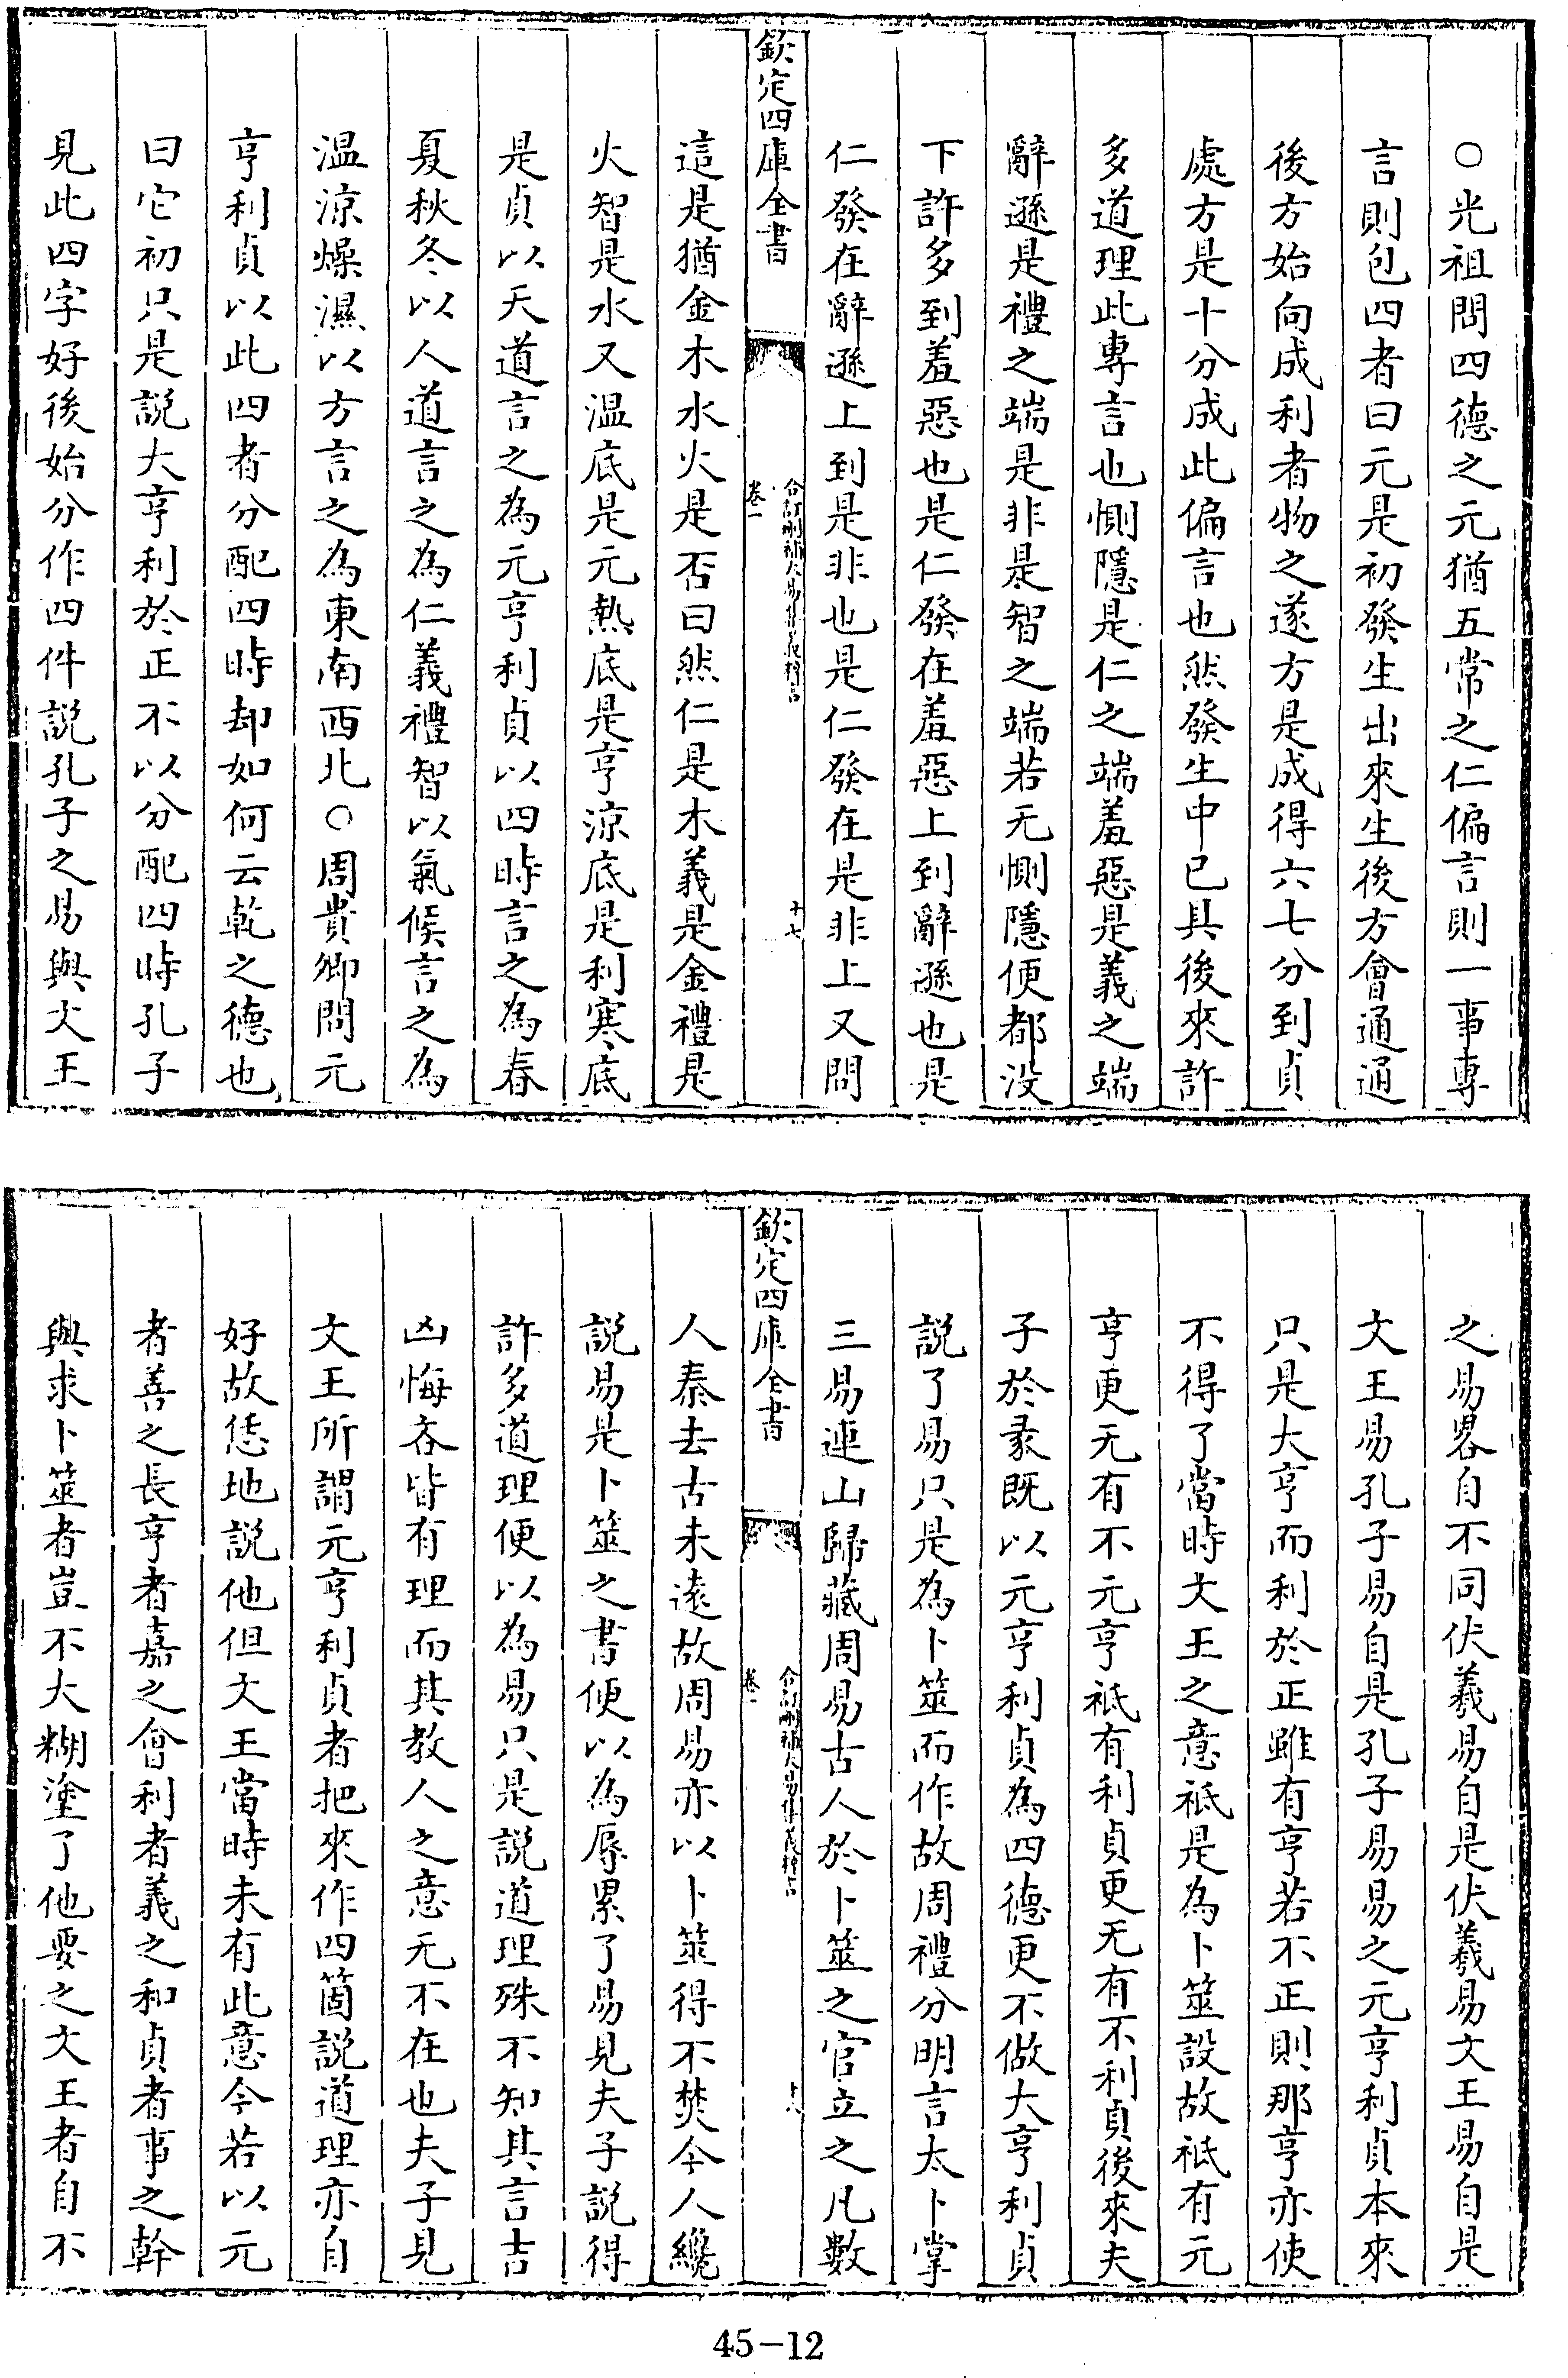 ○光祖問四德之元猶五常之仁偏言則一事專
言則包四者曰元是初發生出來生後方會通通
後方始向成利者物之遂方是成得六七分到貞
處方是十分成此偏言也然發生中已具後來許
多道理此專言也惻隱是仁之端羞惡是義之端
辭遜是禮之端是非是智之端若无惻隱便都没
下許多到羞惡也是仁發在羞惡上到辭遜也是
仁發在辭遜上到是非也是仁發在是非上又問
欽定四庫全書
合訂刪補大易集義粹言
卷一
十七
這是猶金木水火是否曰然仁是木義是金禮是
火智是水又温底是元熱底是亨涼底是利寒底
是貞以天道言之為元亨利貞以四時言之為春
夏秋冬以人道言之為仁義禮智以氣候言之為
温涼燥濕以方言之為東南西北○周貴卿問元
亨利貞以此四者分配四時却如何云乾之德也
曰它初只是説大亨利於正不以分配四時孔子
見此四字好後始分作四件説孔子之易與文王
之易畧自不同伏羲易自是伏羲易文王易自是
文王易孔子易自是孔子易易之元亨利貞本來
只是大亨而利於正雖有亨若不正則那亨亦使
不得了當時文王之意祗是為卜筮設故祗有元
亨更无有不元亨祗有利貞更无有不利貞後來夫
子於彖既以元亨利貞為四德更不做大亨利貞
説了易只是為卜筮而作故周禮分明言太卜掌
三易連山歸藏周易古人於卜筮之官立之凡數
欽定四庫全書
合訂刪補大易集義粹言
卷一
十八
人秦去古未逺故周易亦以卜筮得不焚今人纔
説易是卜筮之書便以為辱累了易見夫子説得
許多道理便以為易只是説道理殊不知其言吉
凶悔吝皆有理而其教人之意无不在也夫子見
文王所謂元亨利貞者把來作四箇説道理亦自
好故恁地説他但文王當時未有此意今若以元
者善之長亨者嘉之會利者義之和貞者事之幹
與求卜筮者豈不大糊塗了他要之文王者自不
45-12